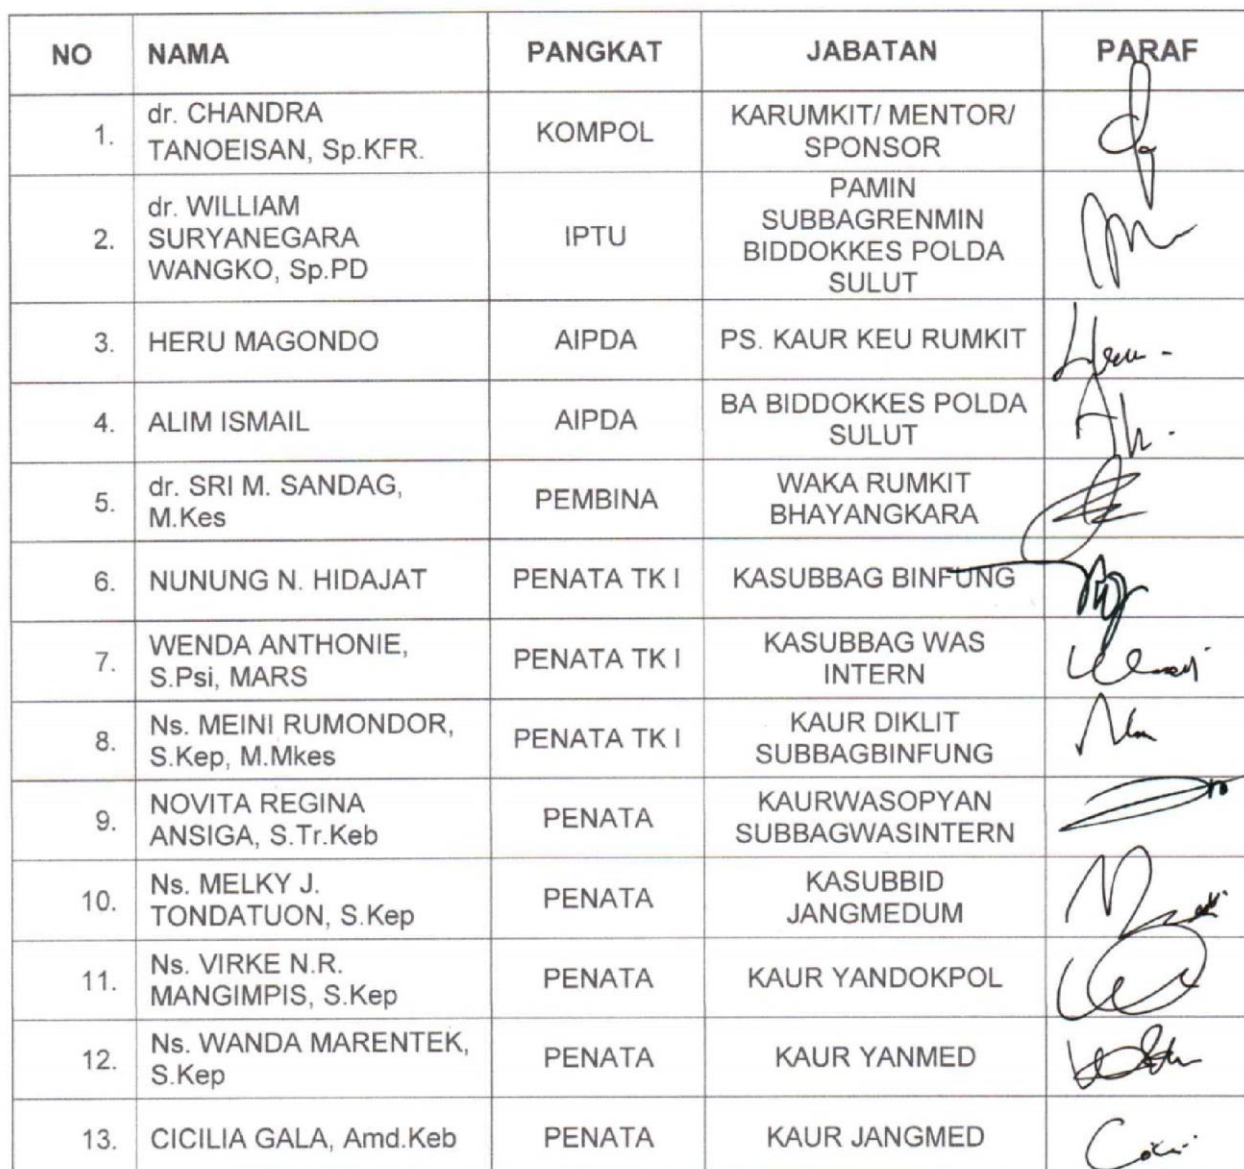 NO NAMA PANGKAT JABATAN PARAF
1. dr. CHANDRA
TANOEISAN, Sp.KFR. KOMPOL KARUMKIT/ MENTOR/
SPONSOR
2. dr. WILLIAM
SURYANEGARA
WANGKO, Sp.PD IPTU PAMIN
SUBBAGRENMIN
BIDDOKKES POLDA
SULUT
3. HERU MAGONDO AIPDA PS. KAUR KEU RUMKIT
4. ALIM ISMAIL AIPDA BA BIDDOKKES POLDA
SULUT
5. dr. SRI M. SANDAG,
M.Kes PEMBINA WAKA RUMKIT
BHAYANGKARA
6. NUNUNG N. HIDAJAT PENATA TK I KASUBBAG BINFUNG
7. WENDA ANTHONIE,
S.Psi, MARS PENATA TK I KASUBBAG WAS
INTERN
8. Ns. MEINI RUMONDOR,
S.Kep, M.Mkes PENATA TK I KAUR DIKLIT
SUBBAGBINFUNG
9. NOVITA REGINA
ANSIGA, S.Tr.Keb PENATA KAURWASOPYAN
SUBBAGWASINTERN
10. Ns. MELKY J.
TONDATUON, S.Kep PENATA KASUBBID
JANGMEDUM
11. Ns. VIRKE N.R.
MANGIMPIS, S.Kep PENATA KAUR YANDOKPOL
12. Ns. WANDA MARENTEK,
S.Kep PENATA KAUR YANMED
13. CICILIA GALA, Amd.Keb PENATA KAUR JANGMED